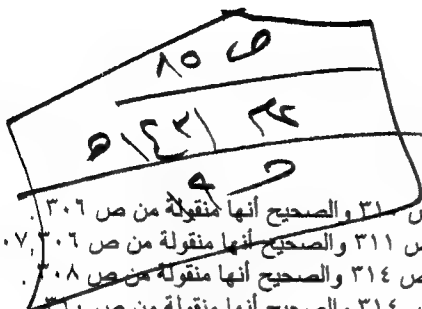 ص ٨٥
١٤٣١ هـ
ص ٣١٠ والصحيح أنها منقولة من ص ٣٠٦ .
ص ٣١١ والصحيح أنها منقولة من ص ٣٠٦ ,٠٧
ص ٣١٤ والصحيح أنها منقولة من ص ٣٠٨ .
ص ٣١٤ والصحيح أنها منقولة من ص